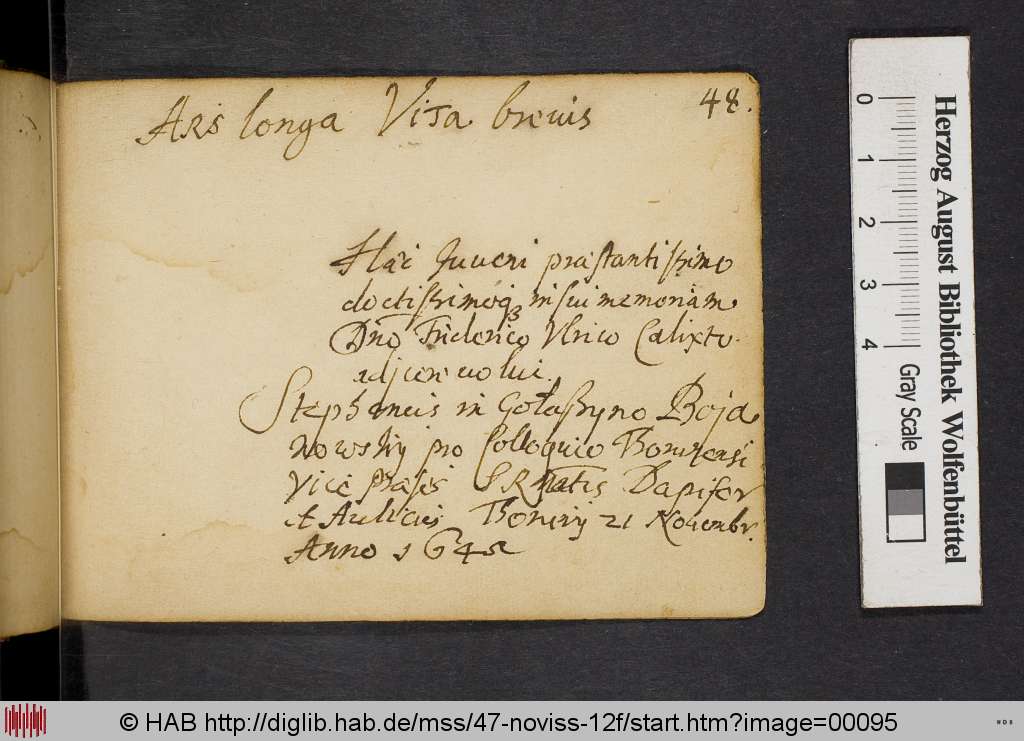 48.
Ars longa Vita breuis
Haec Juueni praestantissimo
doctissimoq3 in sui memoriam
Dno Friderico Ulrico Calixto
adjicere uolui.
Stephanus in Gołaszyno Boja
nowsky pro Colloquio Thoruniensi
Vice Praeses SRMatis Dapifer
et Aulicus Thorunij 21 Nouembr.
Anno 1645
Herzog August Bibliothek Wolfenbüttel
0 1 2 3 4
Gray Scale
© HAB http://diglib.hab.de/mss/47-noviss-12f/start.htm?image=00095